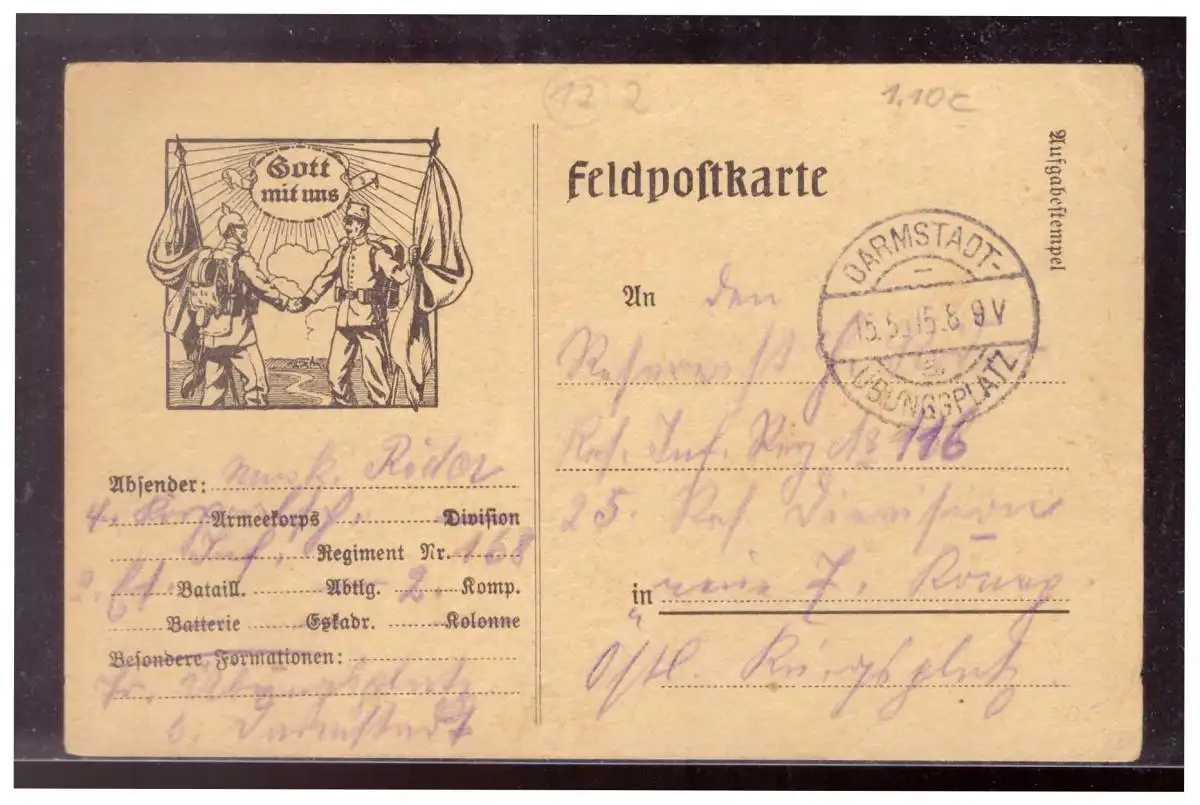 12 2
1.10€
Gott
mit uns
Feldpostkarte
Aufgabestempel
DARMSTADT-
15.5.15.8 9V
ÜBUNGSPLATZ
An den
Res. Inf. Reg № 116
25. Res. Division
in neue 7. Komp.
Östl. Kriegsplatz
Absender: Musk. Röder
4. Armeekorps Division
Inf. Regiment Nr. 168
Bataill. Abtlg. 2. Komp.
Batterie Eskadr. Kolonne
Besondere Formationen:
Tr. Übungsplatz
b. Darmstadt